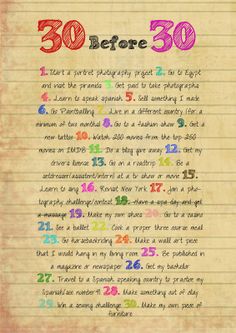 30 Before 30
1. Start a portret photography project 2. Go to Egypt
and visit the piramids 3. Get paid to take photographs
4. Learn to speak spanish 5. Sell something I made
6. Go Paintballing 7. Live in a different country (for a
minimum of two months) 8. Go to a fashion show 9. Get a
new tattoo 10. Watch 250 movies from the top 250
movies on IMDB 11. Do a blog give away 12. Get my
drivers license 13. Go on a roadtrip 14. Be a
set dresser/assistent/intern at a tv show or movie 15.
Learn to sing 16. Revisit New York 17. Join a photography
challenge/contest 18. Have a spa day and get
a massage 19. Make my own shoes 20. Go to a casino
21. See a ballet 22. Cook a proper three course meal
23. Go horsebackriding 24. Make a wall art piece
that I would hang in my living room 25. Be published in
a magazine or newspaper 26. Get my bachelor
27. Travel to a Spanish speaking country to practise my
Spanish(see number4) 28. Make something out of clay
29. Win a sewing challenge 30. Make my own piece of
furniture